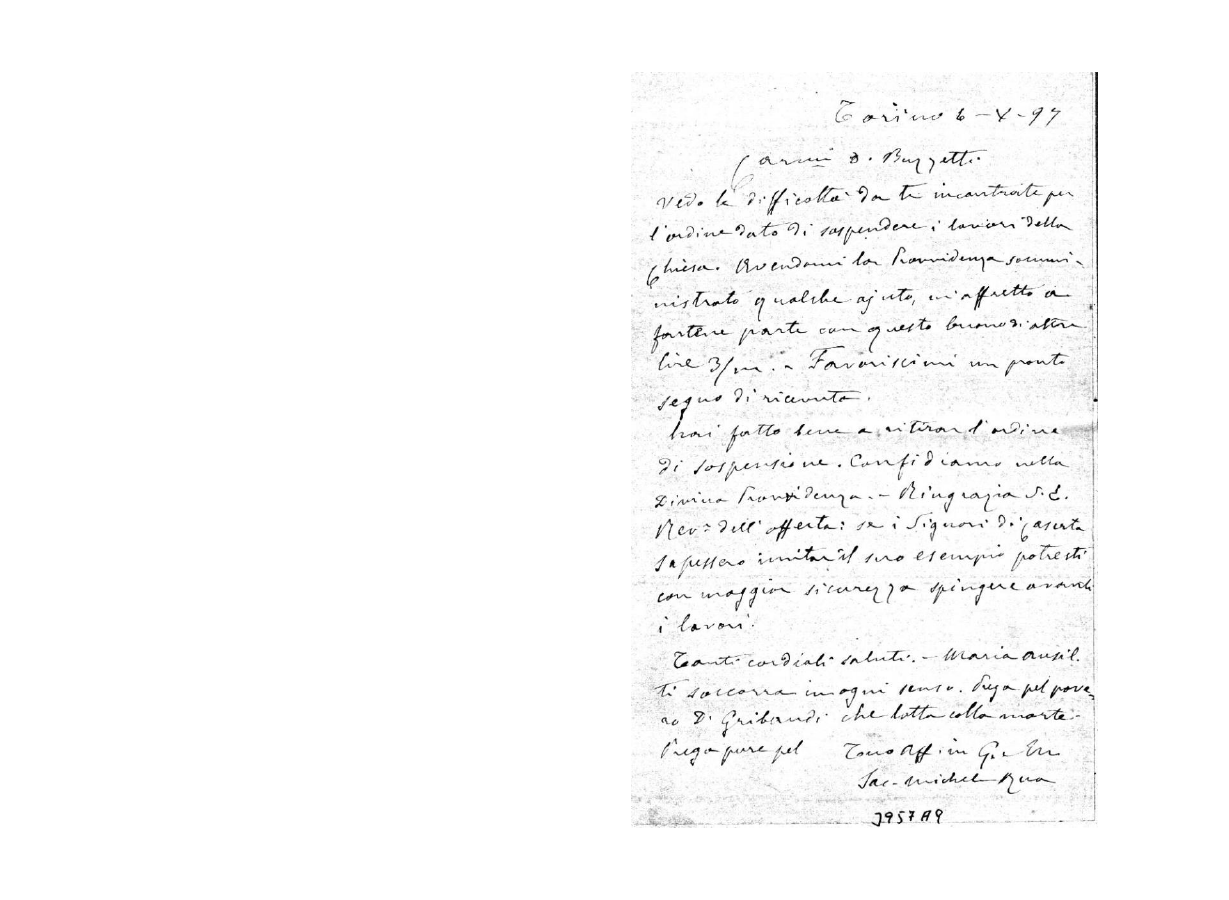 Torino 6 - X - 97
Carmi D. Buzzetti
Vedo le difficoltà da te incontrate per
l'ordine dato di sospendere i lavori della
Chiesa. Avendomi la Provvidenza sommi-
nistrato qualche ajuto, m'affretto a
fartene parte con questo buono di altre
lire 3/m. - Favoriscimi un pronto
segno di ricevuta.
hai fatto bene a ritirar l'ordine
di sospensione. Confidiamo nella
Divina Provvidenza. - Ringrazia S. E.
Rev.ma dell'offerta: se i Signori di Caserta
sapessero imitar il suo esempio potresti
con maggior sicurezza spingere avanti
i lavori.
Tanti cordiali saluti. - Maria Ausil.
ti soccorra in ogni senso. Prega pel pove-
ro D. Gribaudi che lotta colla morte.
Prega pure pel Tuo Aff.mo in G. e M.
Sac. Michele Rua
3957A9